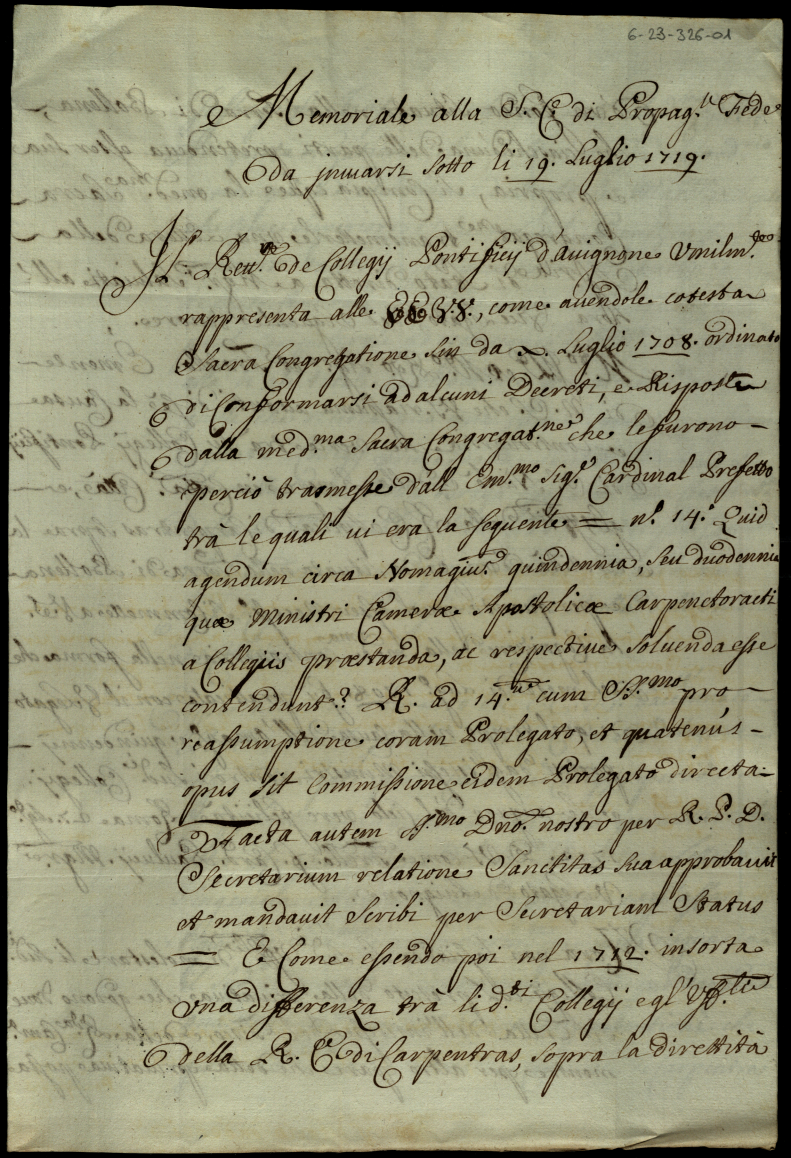 6-23-326-01
Memoriale alla S. C.e di Propag.le Fede
da jnuiarsi sotto li 19. Luglio 1719.
Il Rett.re de Collegij Pontificij d'Auignone Vmilm.te
rappresenta alle EE. VV., come auendole cotesta
Sacra Congregatione sin da Luglio 1708. ordinato
di Conformarsi ad alcuni Decreti, e Risposte
dalla med.ma Sacra Congregat.ne che le furono -
perciò trasmesse dall' Em.mo Sig.r Cardinal Prefetto
trà le quali ui era la seguente = n.o 14.o Quid
agendum circa quindennia, seu duodennia
quæ Ministri Cameræ Apostolicæ Carpenctoracti
a Collegijs præstanda, ac respectiue soluenda esse
contendunt? R. ad 14.m cum SS.mo pro -
reassumptione coram Prolegato, et quatenùs -
opus sit Commissione eidem Prolegato directa -
Facta autem SS.mo Dno. nostro per R. P. D.
Secretarium relatione Sanctitas sua approbauit
et mandauit scribi per Secretariam Status
= E Come essendo poi nel 1712. insorta
vna differenza trà li d.ti Collegij e gl'
della R. C. di Carpentras, sopra la direttità